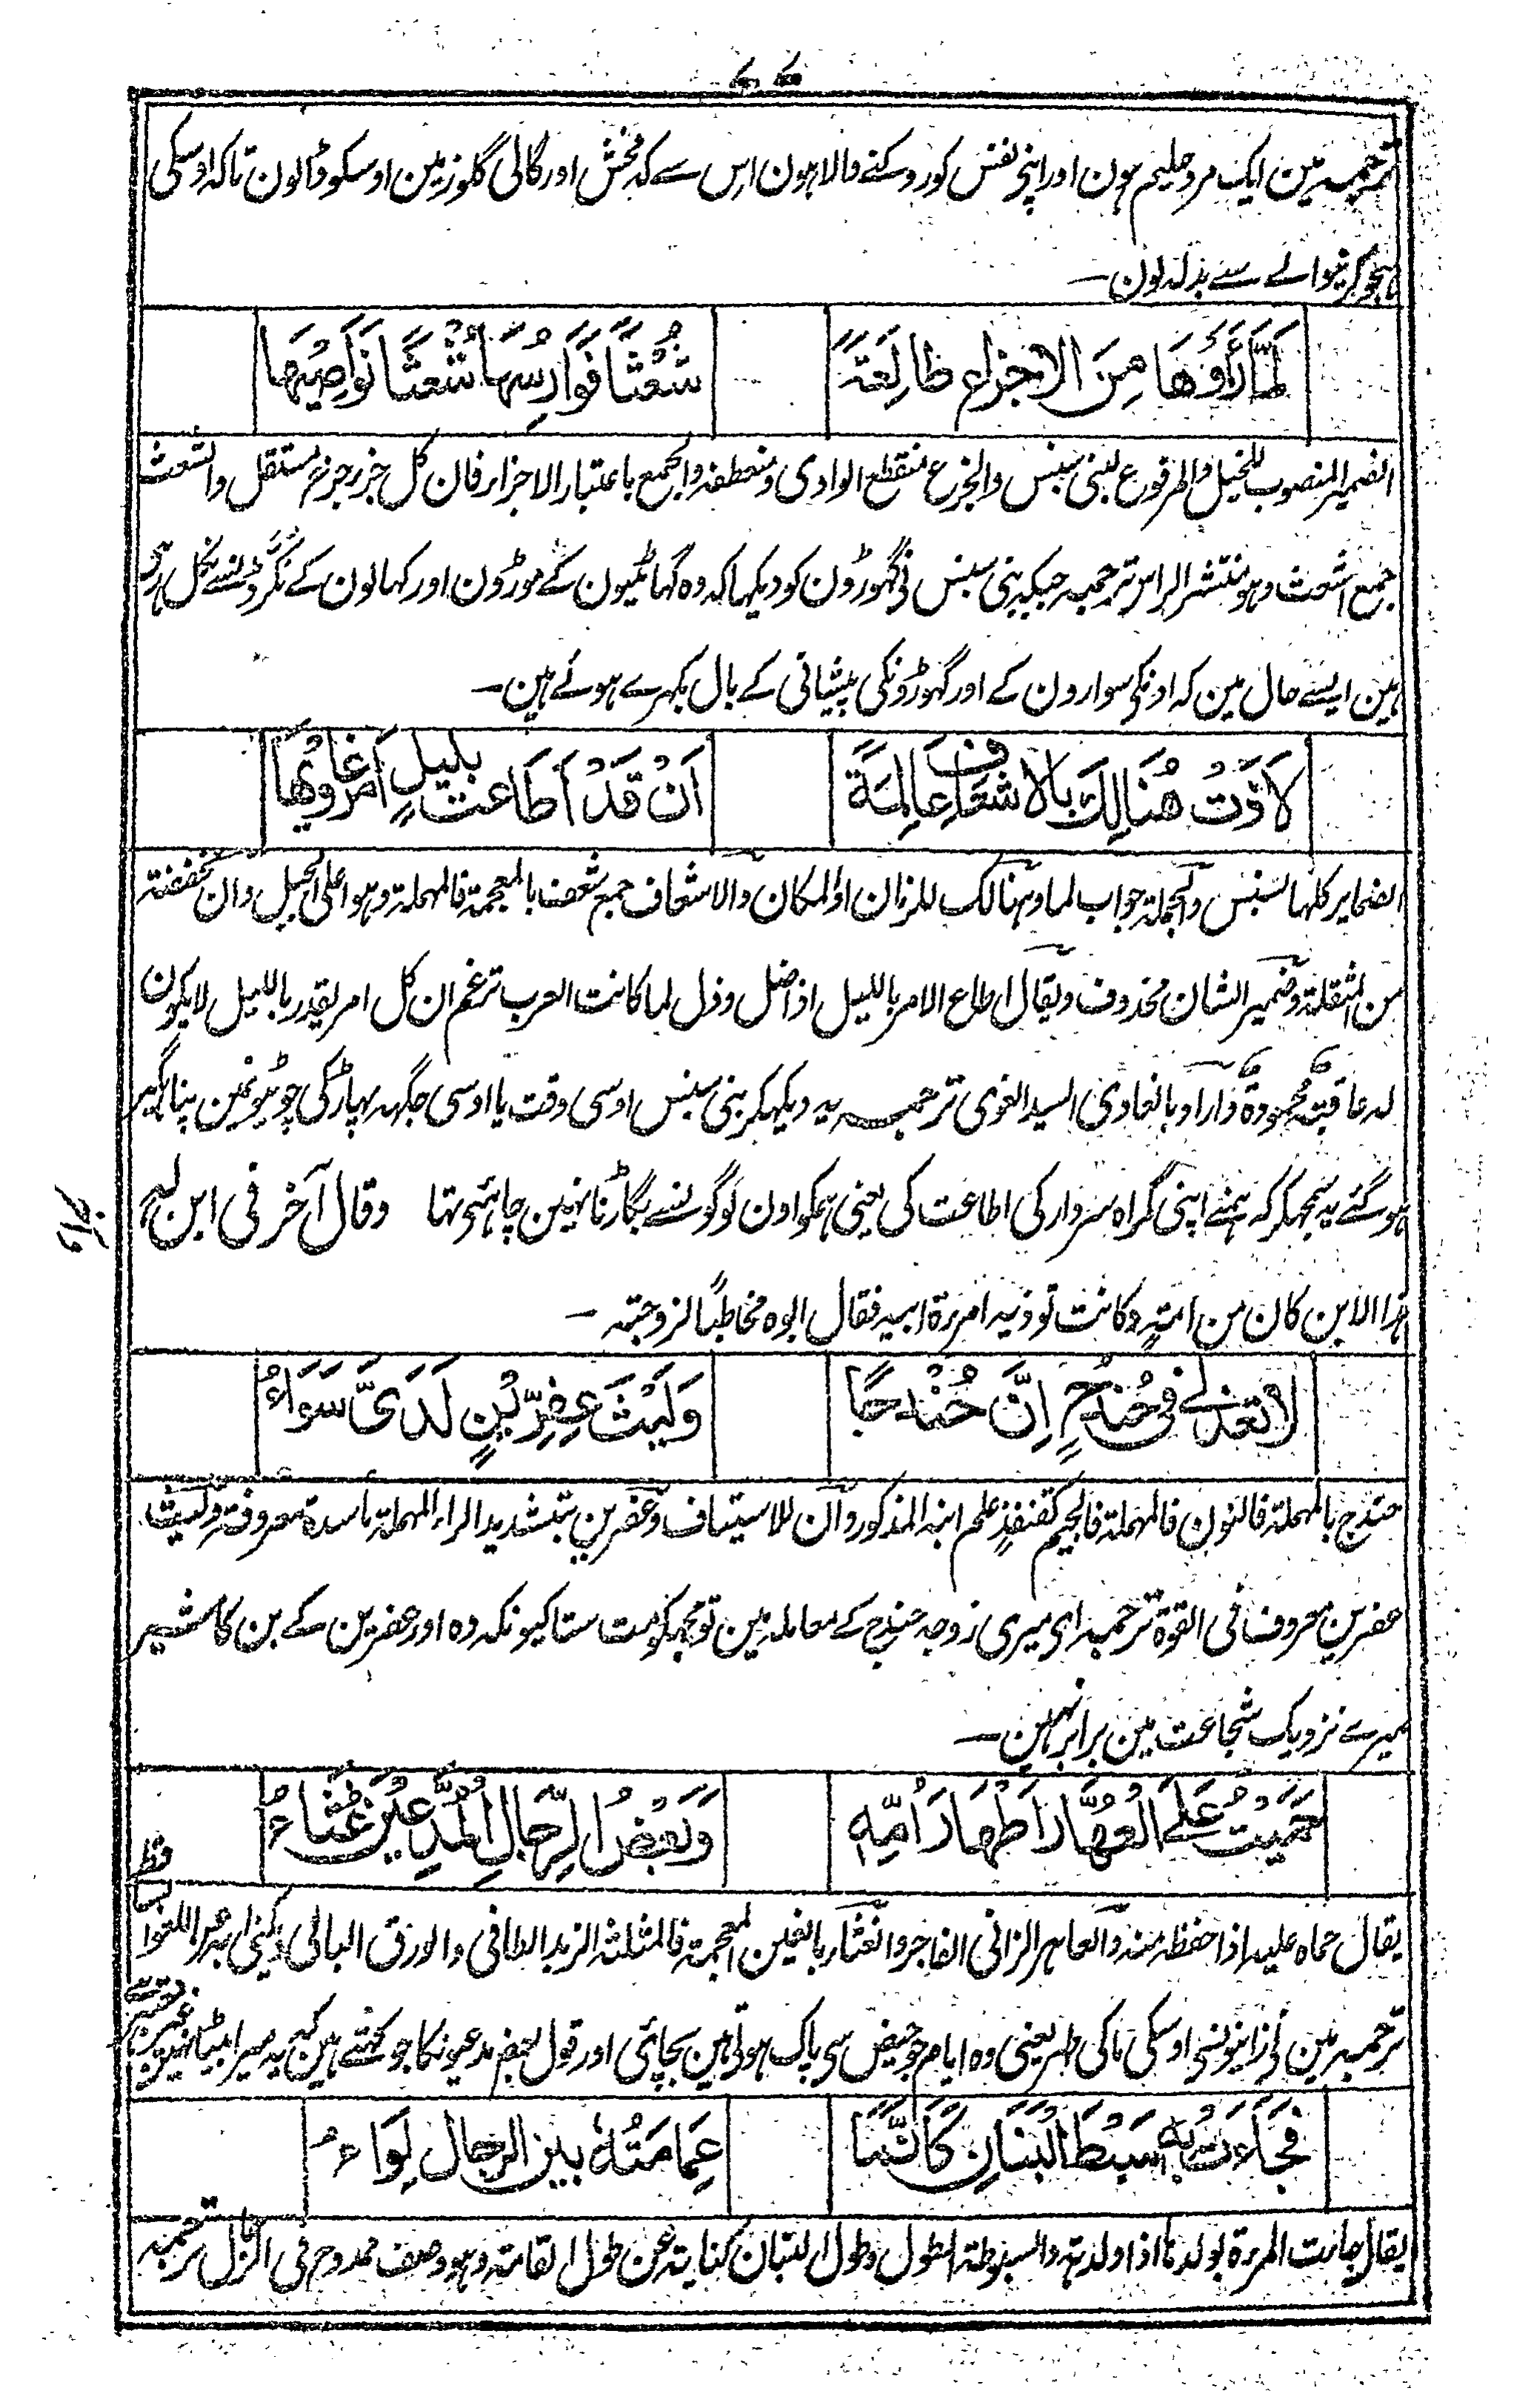 ۷۷
ترجمہ مین ایک مرد حلیم ہون اور اپنی نفس کو روکنے والا ہون اس سے کہ فحش اور گالی گلوز مین اوسکو ڈالون تاکہ اوسکی
ہجو کرنیوالے سے بدلہ لون۔
لَمَّا رَأَوْهَا مِنَ الاجزاعِ طَالِعَةً شُعْثًا فَوَارِسُهَا شُعْثًا نَوَاصِيْهَا
الضمیر المنصوب للخیل والمرفوع لبنی سنبس والجزع منقطع الوادی ومنعطفہ والجمع باعتبار الاجزاء فان کل جزء جزع مستقل والشعث
جمع اشعث وہو منتشر الراس ترجمہ جبکہ بنی سنبس نی گھوڑون کو دیکھا کہ وہ گہاٹیون کے موڑون اور کہالون کے نکڑونسے نکل رہی
ہین ایسے حال مین کہ اونکی سوارون کے اور گہوڑونکی پیشانی کے بال بکہرے ہوئے ہین۔
لَاذَتْ هُنَالِكَ بِالاَشْعَافِ عَالِمَةً اَنْ قَدْ اَطَاعَتْ بِلَيْلٍ اَمْرَ غَاوِيْهَا
الضمایر کلہا لسنبس والجملۃ جواب لما وہنالک للزمان او المکان والاشعاف جمع شعف بالمعجمۃ فالمہملۃ وہو اعلی الجبل وان مخففۃ
من المثقلۃ وضمیر الشان محذوف ویقال اطاع الامر باللیل اذا ضل وذل لما کانت العرب تزعم ان کل امر یقدر باللیل لا یکون
لہ عاقبۃ محمودۃ واراد بالغاوی السید الغوی ترجمہ یہ دیکھکر بنی سنبس اوسی وقت یا اوسی جگہہ پہاڑ کی چوٹیونمین پناہگیر
ہو گئے یہ سمجہکر کہ ہمنے اپنی گمراہ سردار کی اطاعت کی یعنی ہمکو اون لوگونسے بگاڑنا نہین چاہئی تہا وقال آخر فی ابن لہ
ہذا الابن کان من امۃٍ وکانت توذیہ امرءۃ ابیہ فقال ابوہ مخاطبًا لزوجتہ۔
لَا تَعْذُلِي فِي حُنْدُجٍ اِنَّ حُنْدُجًا وَلَيْثَ عِفِرِّيْنٍ لَدَيَّ سَوَاءُ
حندج بالمہملۃ فالنون فالمہملۃ فالجیم کقنفذٍ علم ابنہ المذکور وان للاستیناف وعفرین بتشدید الراء المہملۃ ماسدۃ معروفۃ ولیث
عفرین معروف فی القوۃ ترجمہ ای میری زوجہ حندج کے معاملہ مین تو مجہکو مت ستا کیونکہ وہ اور عفرین کے بن کا شیر
میرے نزدیک شجاعت مین برابر ہین۔
حَمَيْتُ عَلَى الْعُهَّارِ اَطْهَارَ اُمِّهٖ وَبَعْضُ الرِّجَالِ الْمُدَّعِيْنَ غُثَاءُ
یقال حماہ علیہ اذا حفظہ منہ والعاہر الزانی الفاجر والغثاء بالغین المعجمۃ فالمثلثۃ الزبد الطافی والورق البالی
ترجمہ مین نی زانیونسی اوسکی ماکی طہر یعنی وہ ایام جو حیض سی پاک ہوتی ہین بچائی اور قول بعض مدعیونکا جو کہتے ہین کہ یہ میرا بیٹا ہی
فَجَاءَتْ بِهٖ سَبْطَ الْبَنَانِ كَاَنَّمَا عِمَامَتُهٗ بَيْنَ الرِّجَالِ لِوَاءُ
یقال جاءت المرءۃ بولدہا اذا ولدتہ والسبوطۃ الطول وطول البنان کنایۃ عن طول القامۃ وہو وصف ممدوح فی الرجال ترجمہ